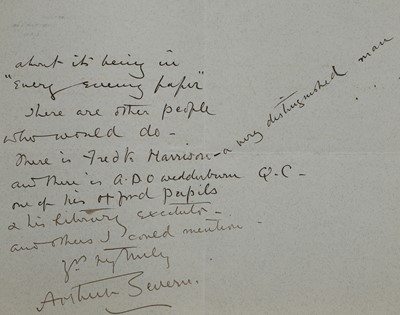 about its being in
"Every evening paper"
There are other people
who would do -
There is Fredk Harrison - a very distinguished man
and there is A.D.O Wedderburn Q.C -
one of his Oxford Pupils
& his literary executor -
and others I could mention -
Yrs truly
Arthur Severn.